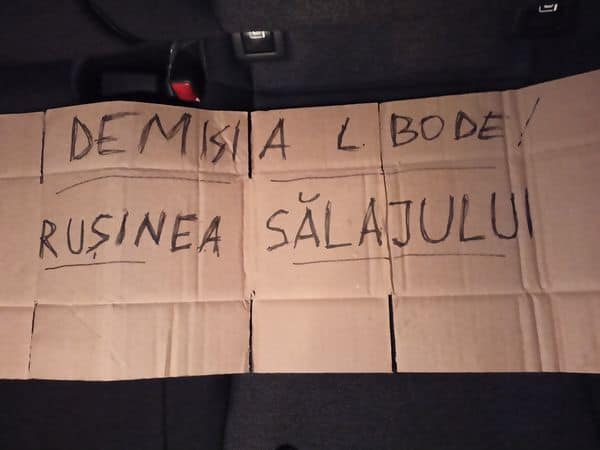 DEMISIA L. BODE!
RUȘINEA SĂLAJULUI